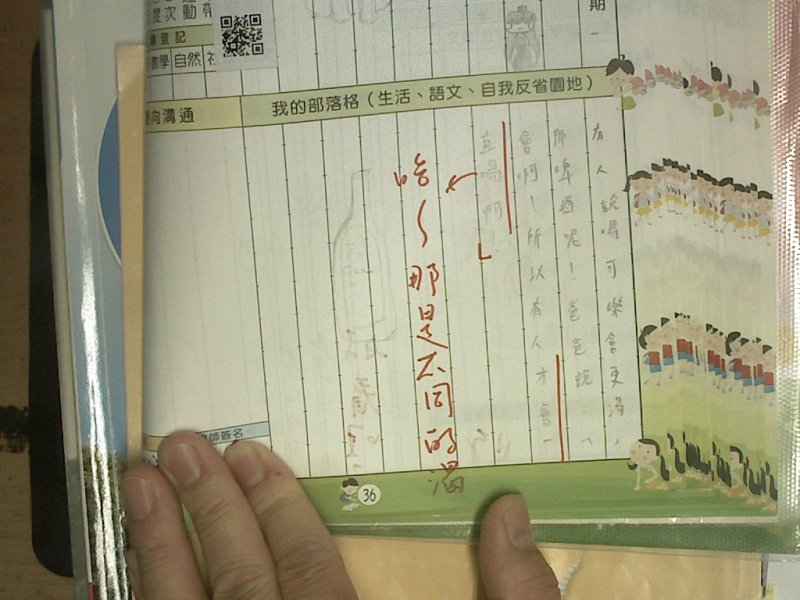 度次動
登記
數學 自然
期
一
雙向溝通
我的部落格（生活、語文、自我反省園地）
有人說喝可樂會更渴，
那啤酒呢！爸爸說：「
會啊！所以有人才會一
直喝啊！」
哈~那是不同的渴
師簽名
36